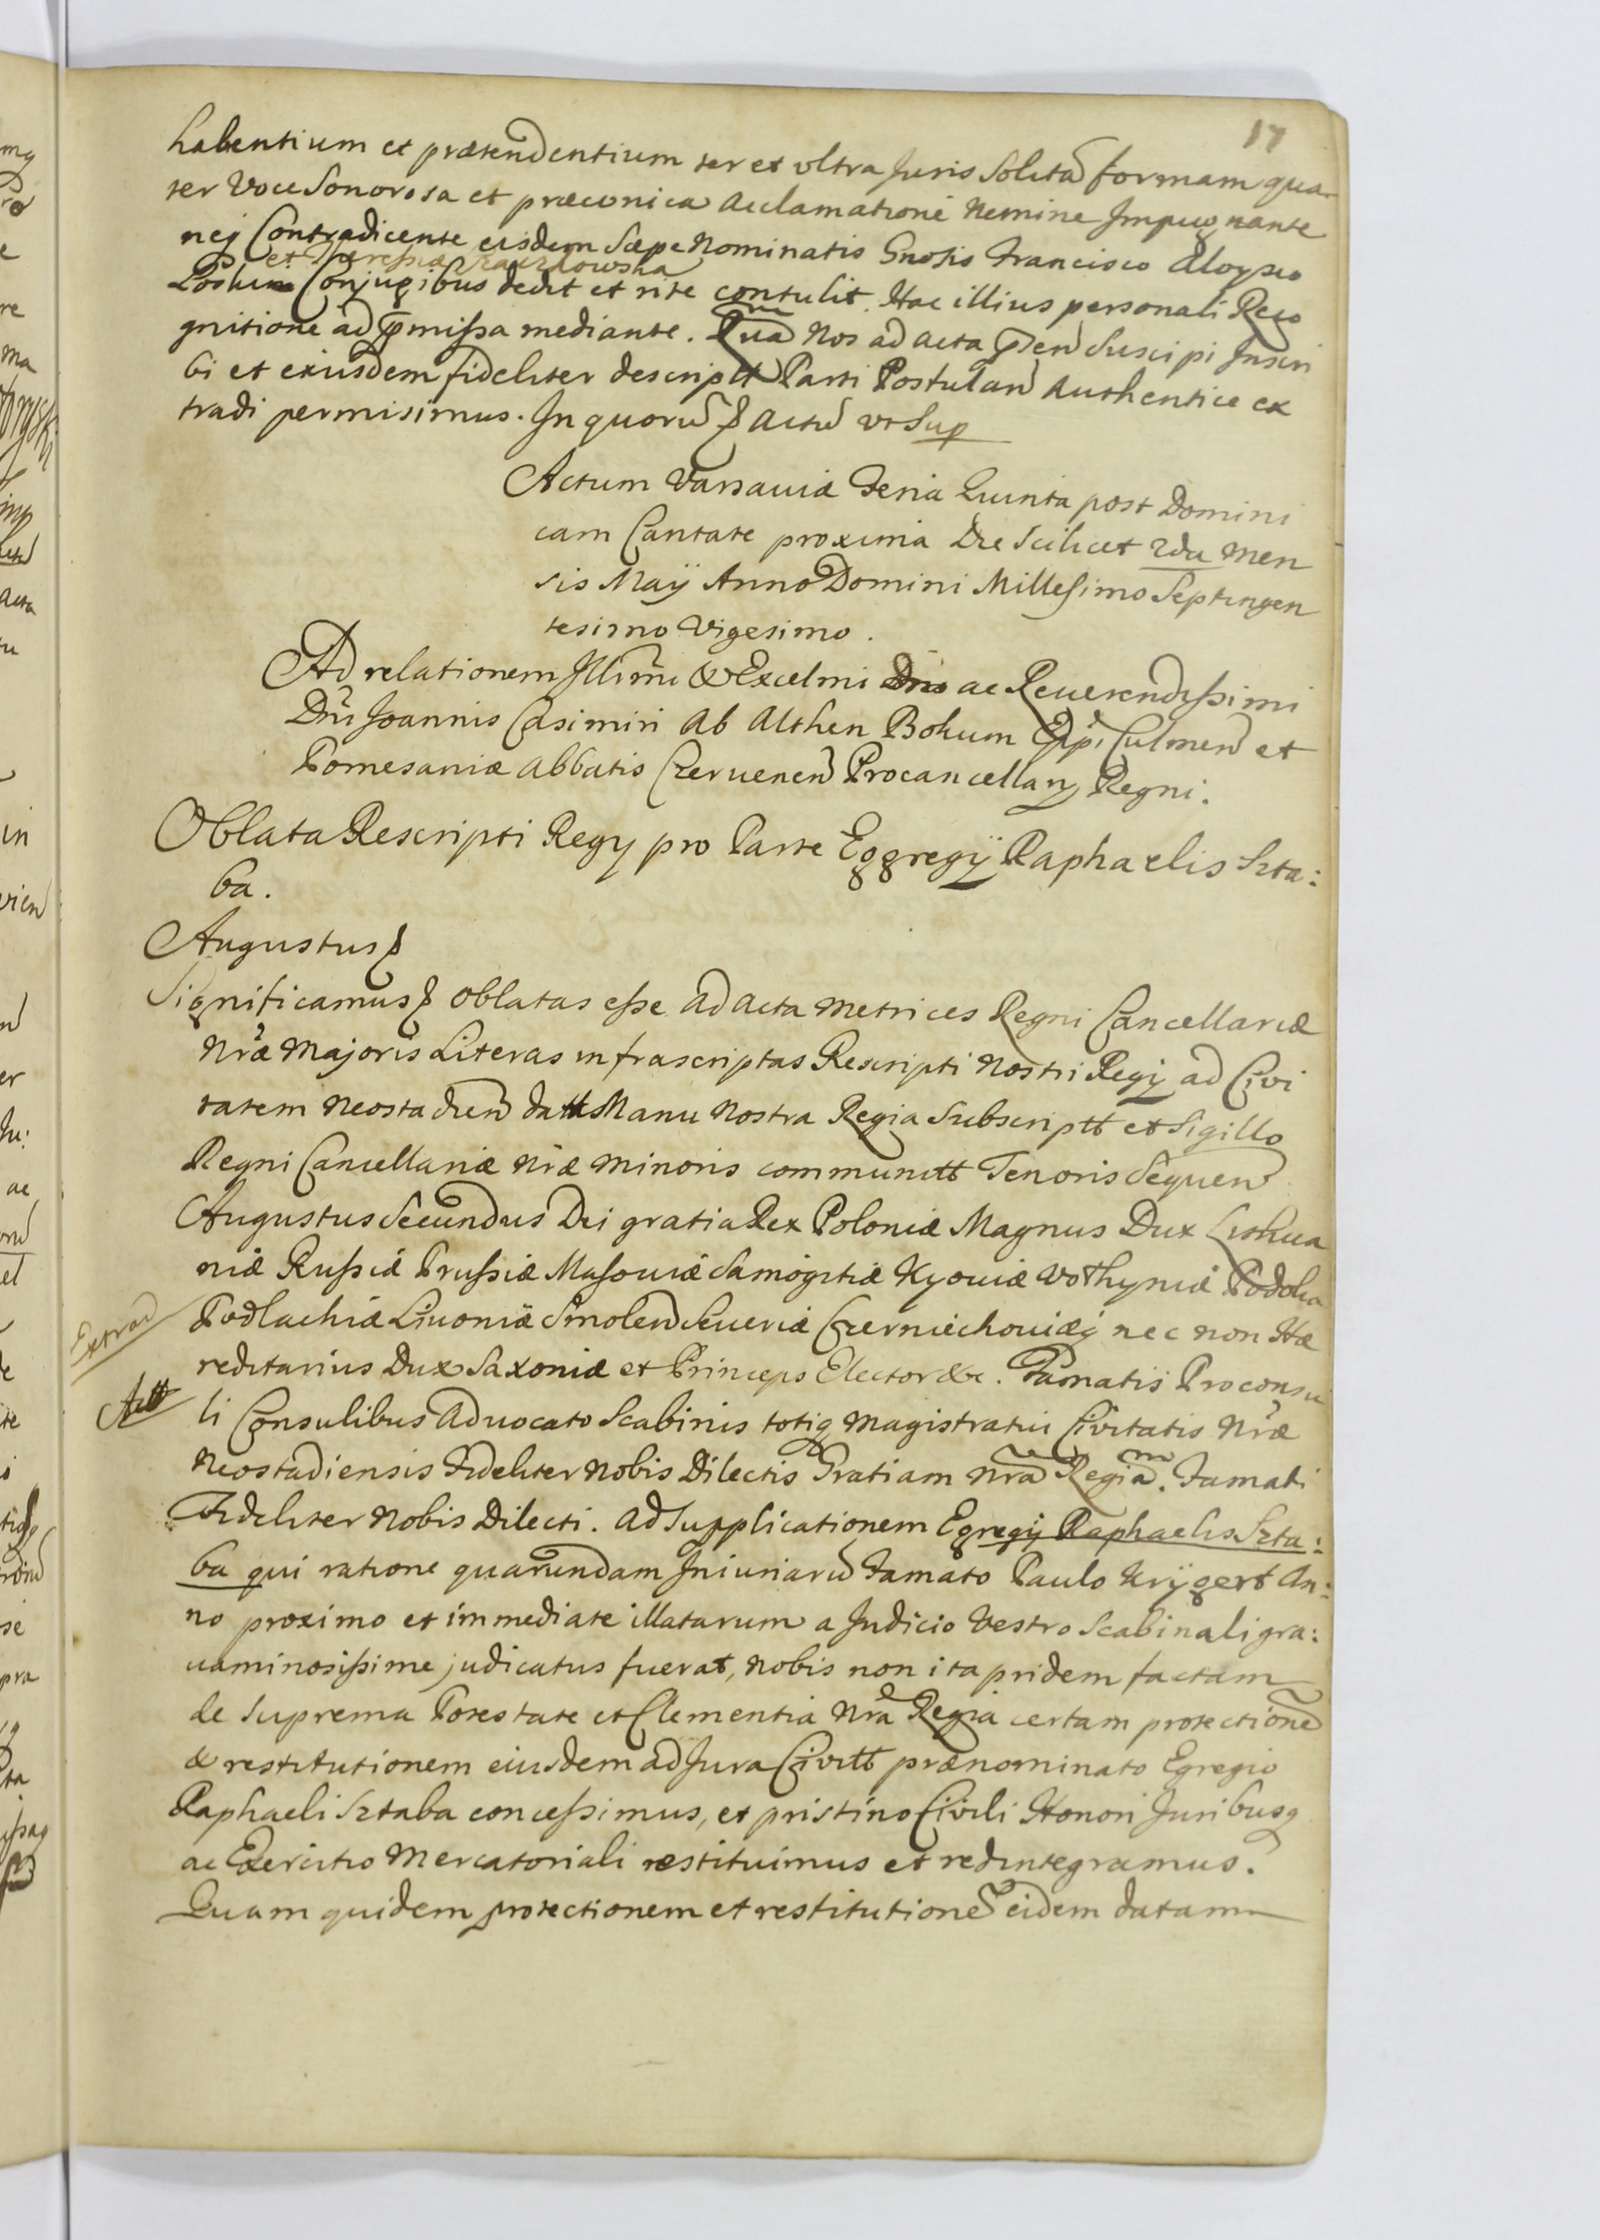 17
habentium et prætendentium ter et vltra Juris Solitã formam qua
ter Voce Sonorosa et præconica acclamatione Nemine Impugnante
neq Contradicente eisdem Sæpe Nominatis Gnosis Francisco Aloysio
et Theressiæ
Conjugibus dedit et rite contulit. Hac illius personali Reco
gnitione ad p̄missa mediante. Quã Nos ad acta p̄sen̄ Suscipi Inscri
bi et exiusdem fideliter descriptt Parti Postulan̄ Authentice ex
tradi permisimus. In quorũ & actũ vt Sup
Actum Varsauiæ Feria Quinta post Domini
cam Cantate proxima Die Scilicet 2da Men
sis Maÿ Anno Domini Millesimo Septingen
tesimo Vigesimo.
Ad relationem Illrmi & Excelmi Dni ac Reuerendissimi
Dni Joannis Casimiri Ab Althen Bokum Epi Culmen̄ et
Pomesaniæ Abbatis Czeruenen̄ Procancellarÿ Regni.
Oblata Rescripti Regÿ pro Parte Eggregÿ Raphaelis Szta:
ba.
Augustus &
Significamus & Oblatas esse ad acta Metrices Regni Cancellariæ
Nræ Majoris Literas infrascriptas Rescripti Nostri Regÿ ad Civi
tatem Neostadien̄ datt Manu Nostra Regia Subscriptt et Sigillo
Regni Cancellariæ Nræ Minoris communitt Tenoris Sequen̄
Augustus Secundus Dei gratia Rex Poloniæ Magnus Dux Lithua
niæ Russiæ Prussiæ Masouiæ Samogitiæ Kyouiæ Volhyniæ Podolia
Podlachiæ Liuoniæ Smolen̄ Seueriæ Czerniechouiæq nec non Hæ
Extrad
reditarius Dux Saxoniæ et Princeps Elector &c. Famatis Proconsu
li Consulibus Aduocato Scabinis totiq Magistratui Civitatis Nræ
Neostadiensis Fideliter Nobis Dilectis Gratiam Nrã Regiam. Famati
Fideliter Nobis Dilecti. Ad Supplicationem Egregÿ Raphaelis Szta:
ba qui ratione quarundam Iniuriarũ Famato Paulo Krÿgert An:
no proximo et immediate illatarum a Judicio Vestro Scabinali gra:
uaminosissime judicatus fuerat, Nobis non ita pridem factam
de Suprema Potestate et Clementia Nra Regia certam protectionẽ
& restitutionem eiusdem ad Jura Civitt prænominato Egregio
Raphaeli Sztaba concessimus, et pristino Civili Honori Juribusq
ac Exercitio Mercatoriali restituimus et redintegramus.
Quam quidem protectionem et restitutionẽ eidem datam